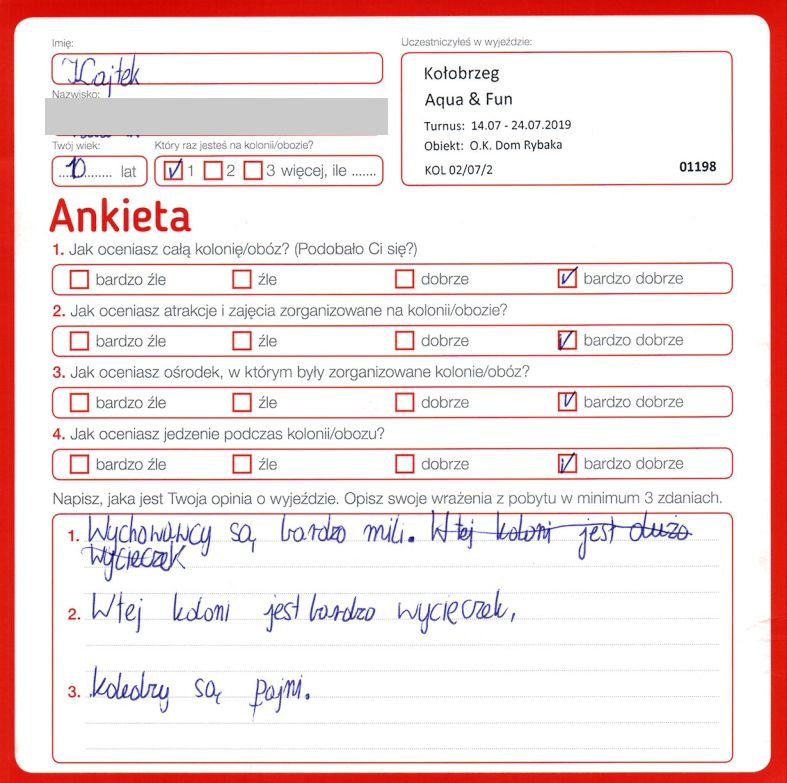 Imię:
Kajtek
Nazwisko:
Twój wiek:
10 lat
Który raz jesteś na kolonii/obozie?
1 2 3 więcej, ile .......
Uczestniczyłeś w wyjeździe:
Kołobrzeg
Aqua & Fun
Turnus: 14.07 - 24.07.2019
Obiekt: O.K. Dom Rybaka
KOL 02/07/2 01198
Ankieta
1. Jak oceniasz całą kolonię/obóz? (Podobało Ci się?)
bardzo źle źle dobrze bardzo dobrze
2. Jak oceniasz atrakcje i zajęcia zorganizowane na kolonii/obozie?
bardzo źle źle dobrze bardzo dobrze
3. Jak oceniasz ośrodek, w którym były zorganizowane kolonie/obóz?
bardzo źle źle dobrze bardzo dobrze
4. Jak oceniasz jedzenie podczas kolonii/obozu?
bardzo źle źle dobrze bardzo dobrze
Napisz, jaka jest Twoja opinia o wyjeździe. Opisz swoje wrażenia z pobytu w minimum 3 zdaniach.
1. Wychowawcy są bardzo mili. W tej koloni jest dużo
wycieczek
2. W tej koloni jest bardzo wycieczek,
3. koledzy są fajni.